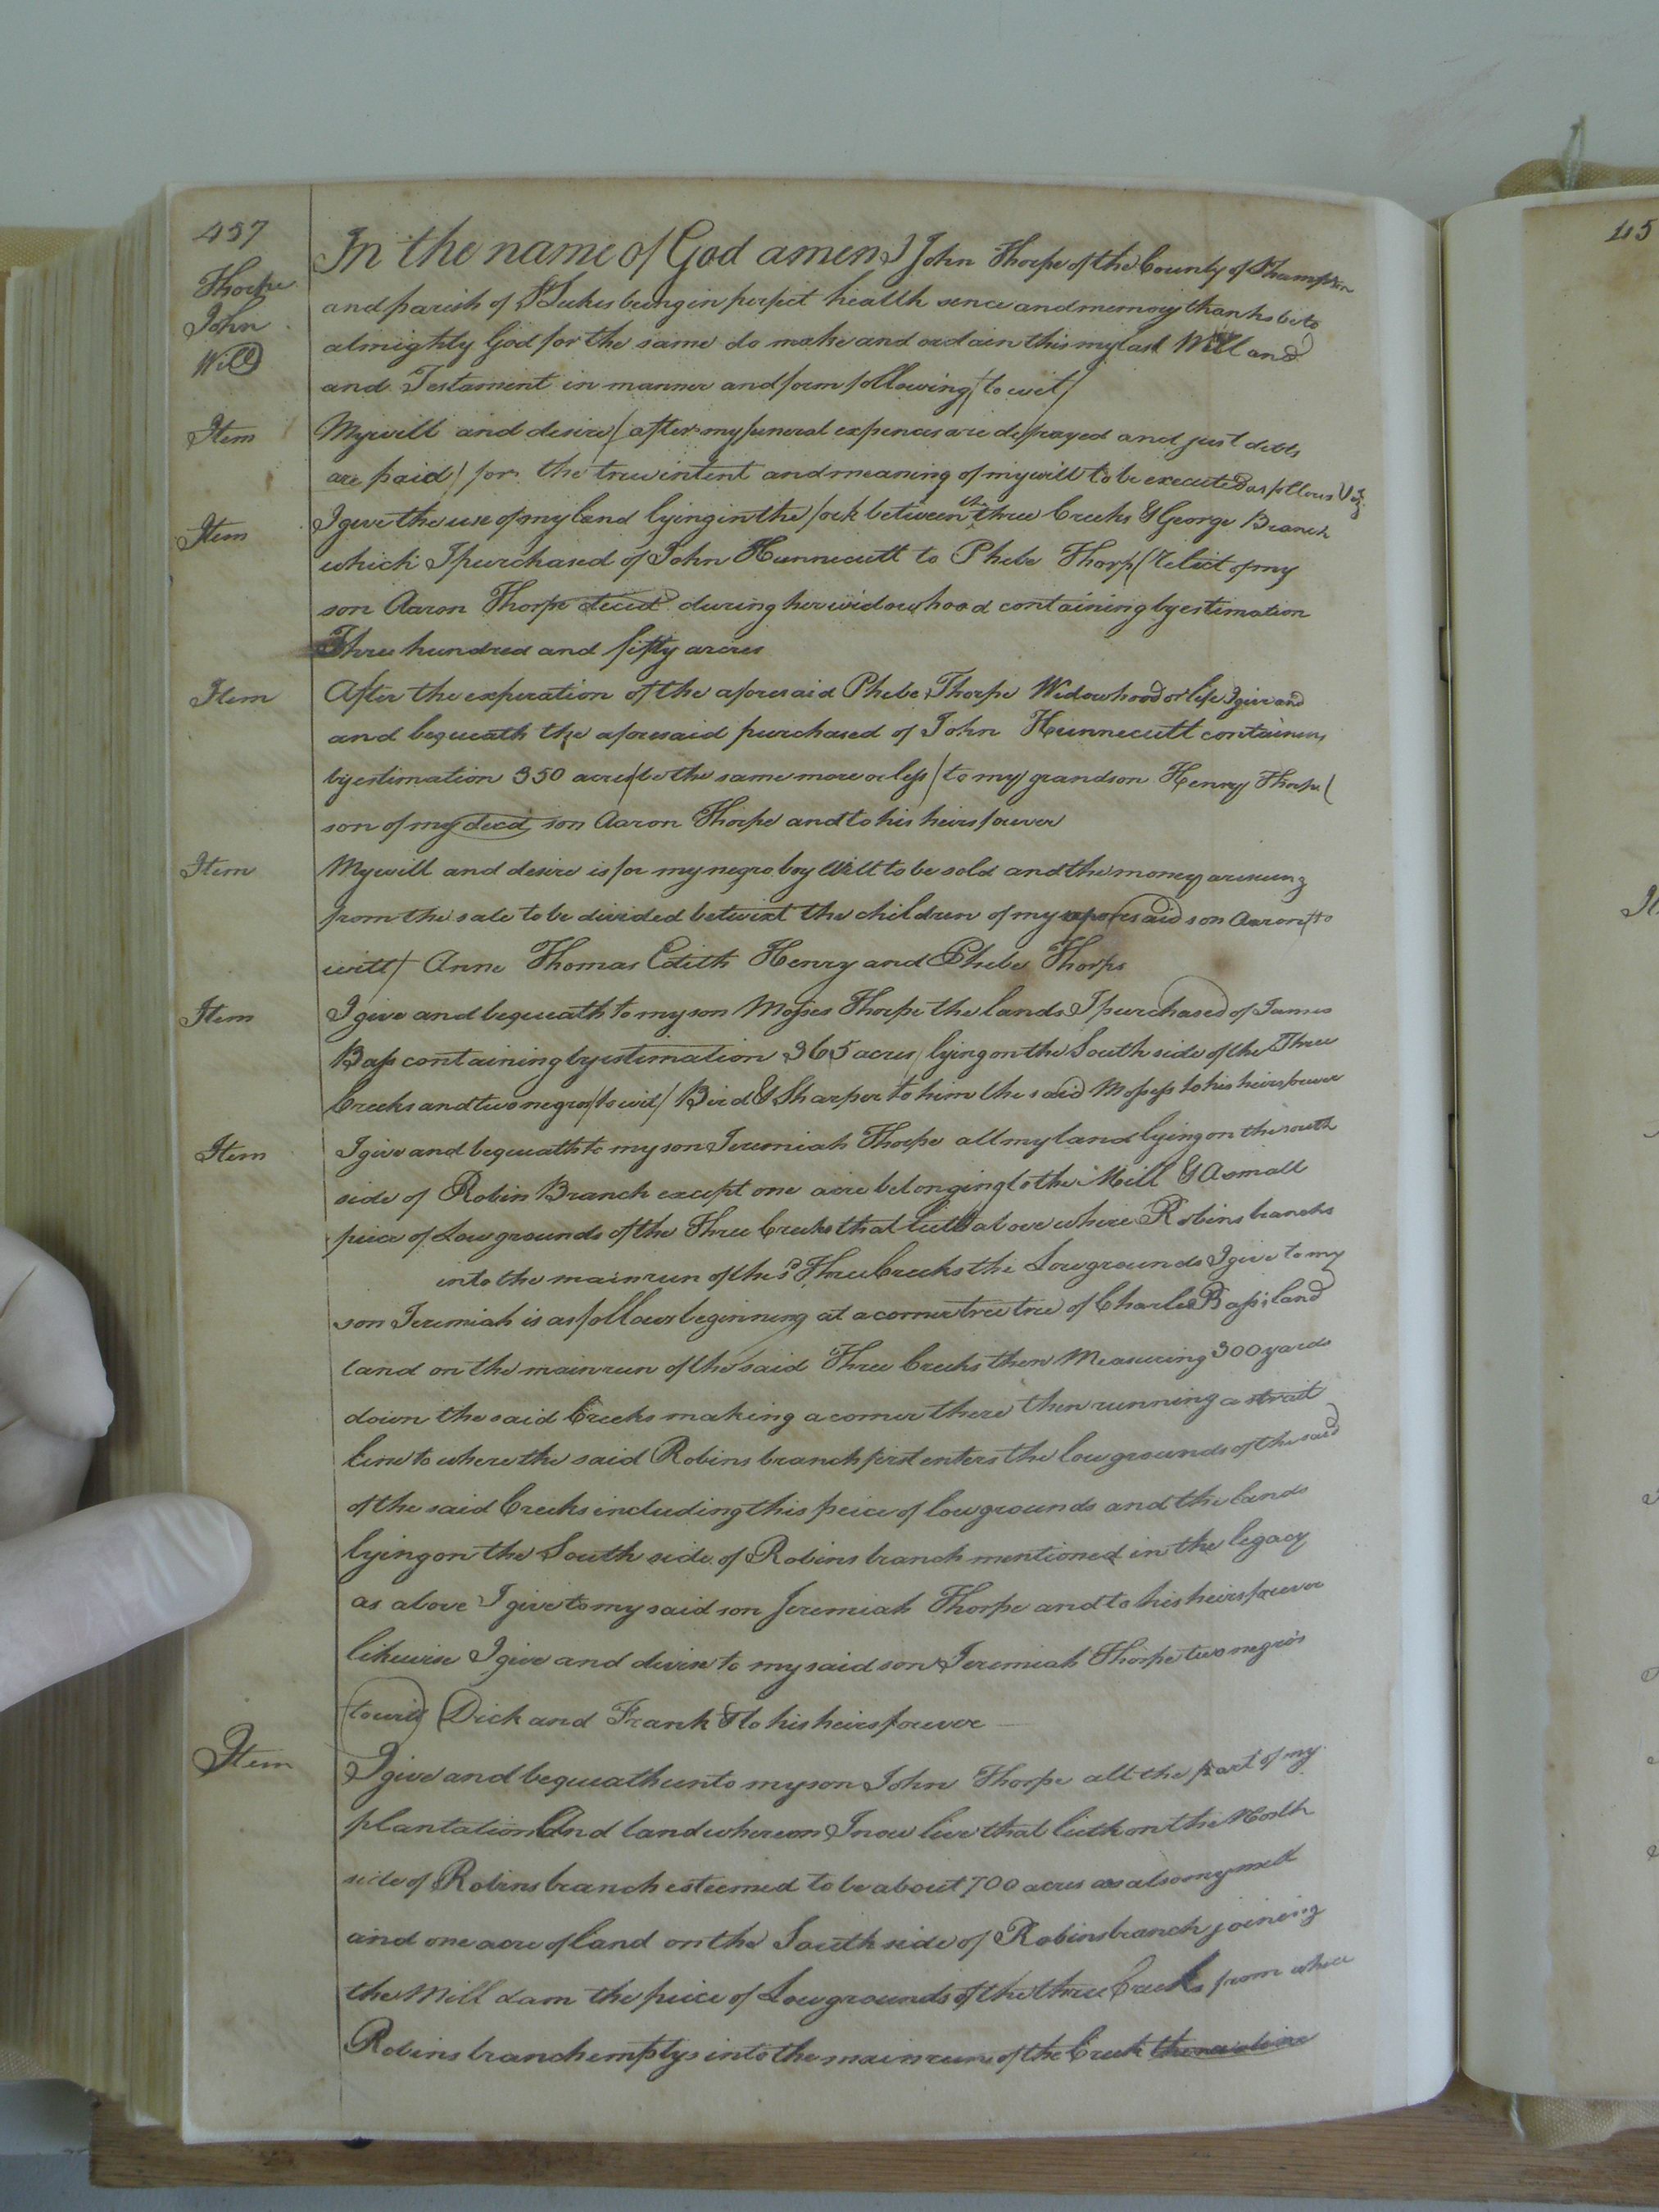 457
Thorpe
John
Will
In the name of God amen I John Thorpe of the County of Shampton
and parish of St Lukes being in perfict health sence and memory thanks be to
almighty God for the same do make and ordain this my last Will and
and Testament in manner and form following / to wit /
Item My will and desire / after my funeral expences are defrayed and just debts
are paid / for the true intent and meaning of my will to be executed as follows Viz
Item I give the use of my land lying in the fork between the three Creeks & George Branch
which I purchased of John Hunnecutt to Phebe Thorp (relict of my
son Aaron Thorpe decd during her widowhood containing by estimation
Three hundred and fifty acres
Item After the experation of the aforesaid Phebe Thorpe Widowhood or life I give and
and bequeath the aforesaid purchased of John Hunnecutt containing
by estimation 350 acres / be the same more or less / to my grandson Henry Thorpe (
son of my decd son Aaron Thorpe and to his heirs forever
Item My will and desire is for my negro boy Will to be sold and the money
from the sale to be divided betwixt the children of my aforesaid son Aaron / to
witt / Anne Thomas Edith Henry and Phebe Thorpe
Item I give and bequeath to my son Moses Thorpe the lands I purchased of James
Bass containing by estimation 365 acres lying on the South side of the Three
Creeks and two negros / to wit / Bird & Sharper to him the said Moses to his heirs forever
Item I give and bequeath to my son Jeremiah Thorpe all my land lying on the south
side of Robin Branch except one acre belonging to the Mill & A small
peice of Low grounds of the Three Creeks that lieth above where Robins branch
into the main run of the sd Three Creeks the Low grounds I give to my
son Jeremiah is as follows beginning at a corner tree tree of Charles Bass's land
land on the main run of the said Three Creeks then Measuring 300 yards
down the said Creeks making a corner there then running a strait
line to where the said Robins branch first enters the low grounds of the said
of the said Creeks including this peice of low grounds and the lands
lying on the South side of Robins branch mentioned in the legacy
as above I give to my said son Jeremiah Thorpe and to his heirs forever
likewise I give and devise to my said son Jeremiah Thorpe two negro's
(to wit) Dick and Frank & to his heirs forever
Item I give and bequeath unto my son John Thorpe all the part of my
plantation And land whereon I now live that lieth on the North
side of Robins branch esteemed to be about 700 acres as also my mill
and one acre of land on the South side of Robins branch joineing
the Mill dam the peice of Low grounds of the three Creeks from where
Robins branch emptys into the main run of the Creek
45